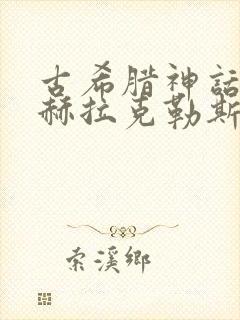 古希腊神話
赫拉克勒斯
索溪鄉